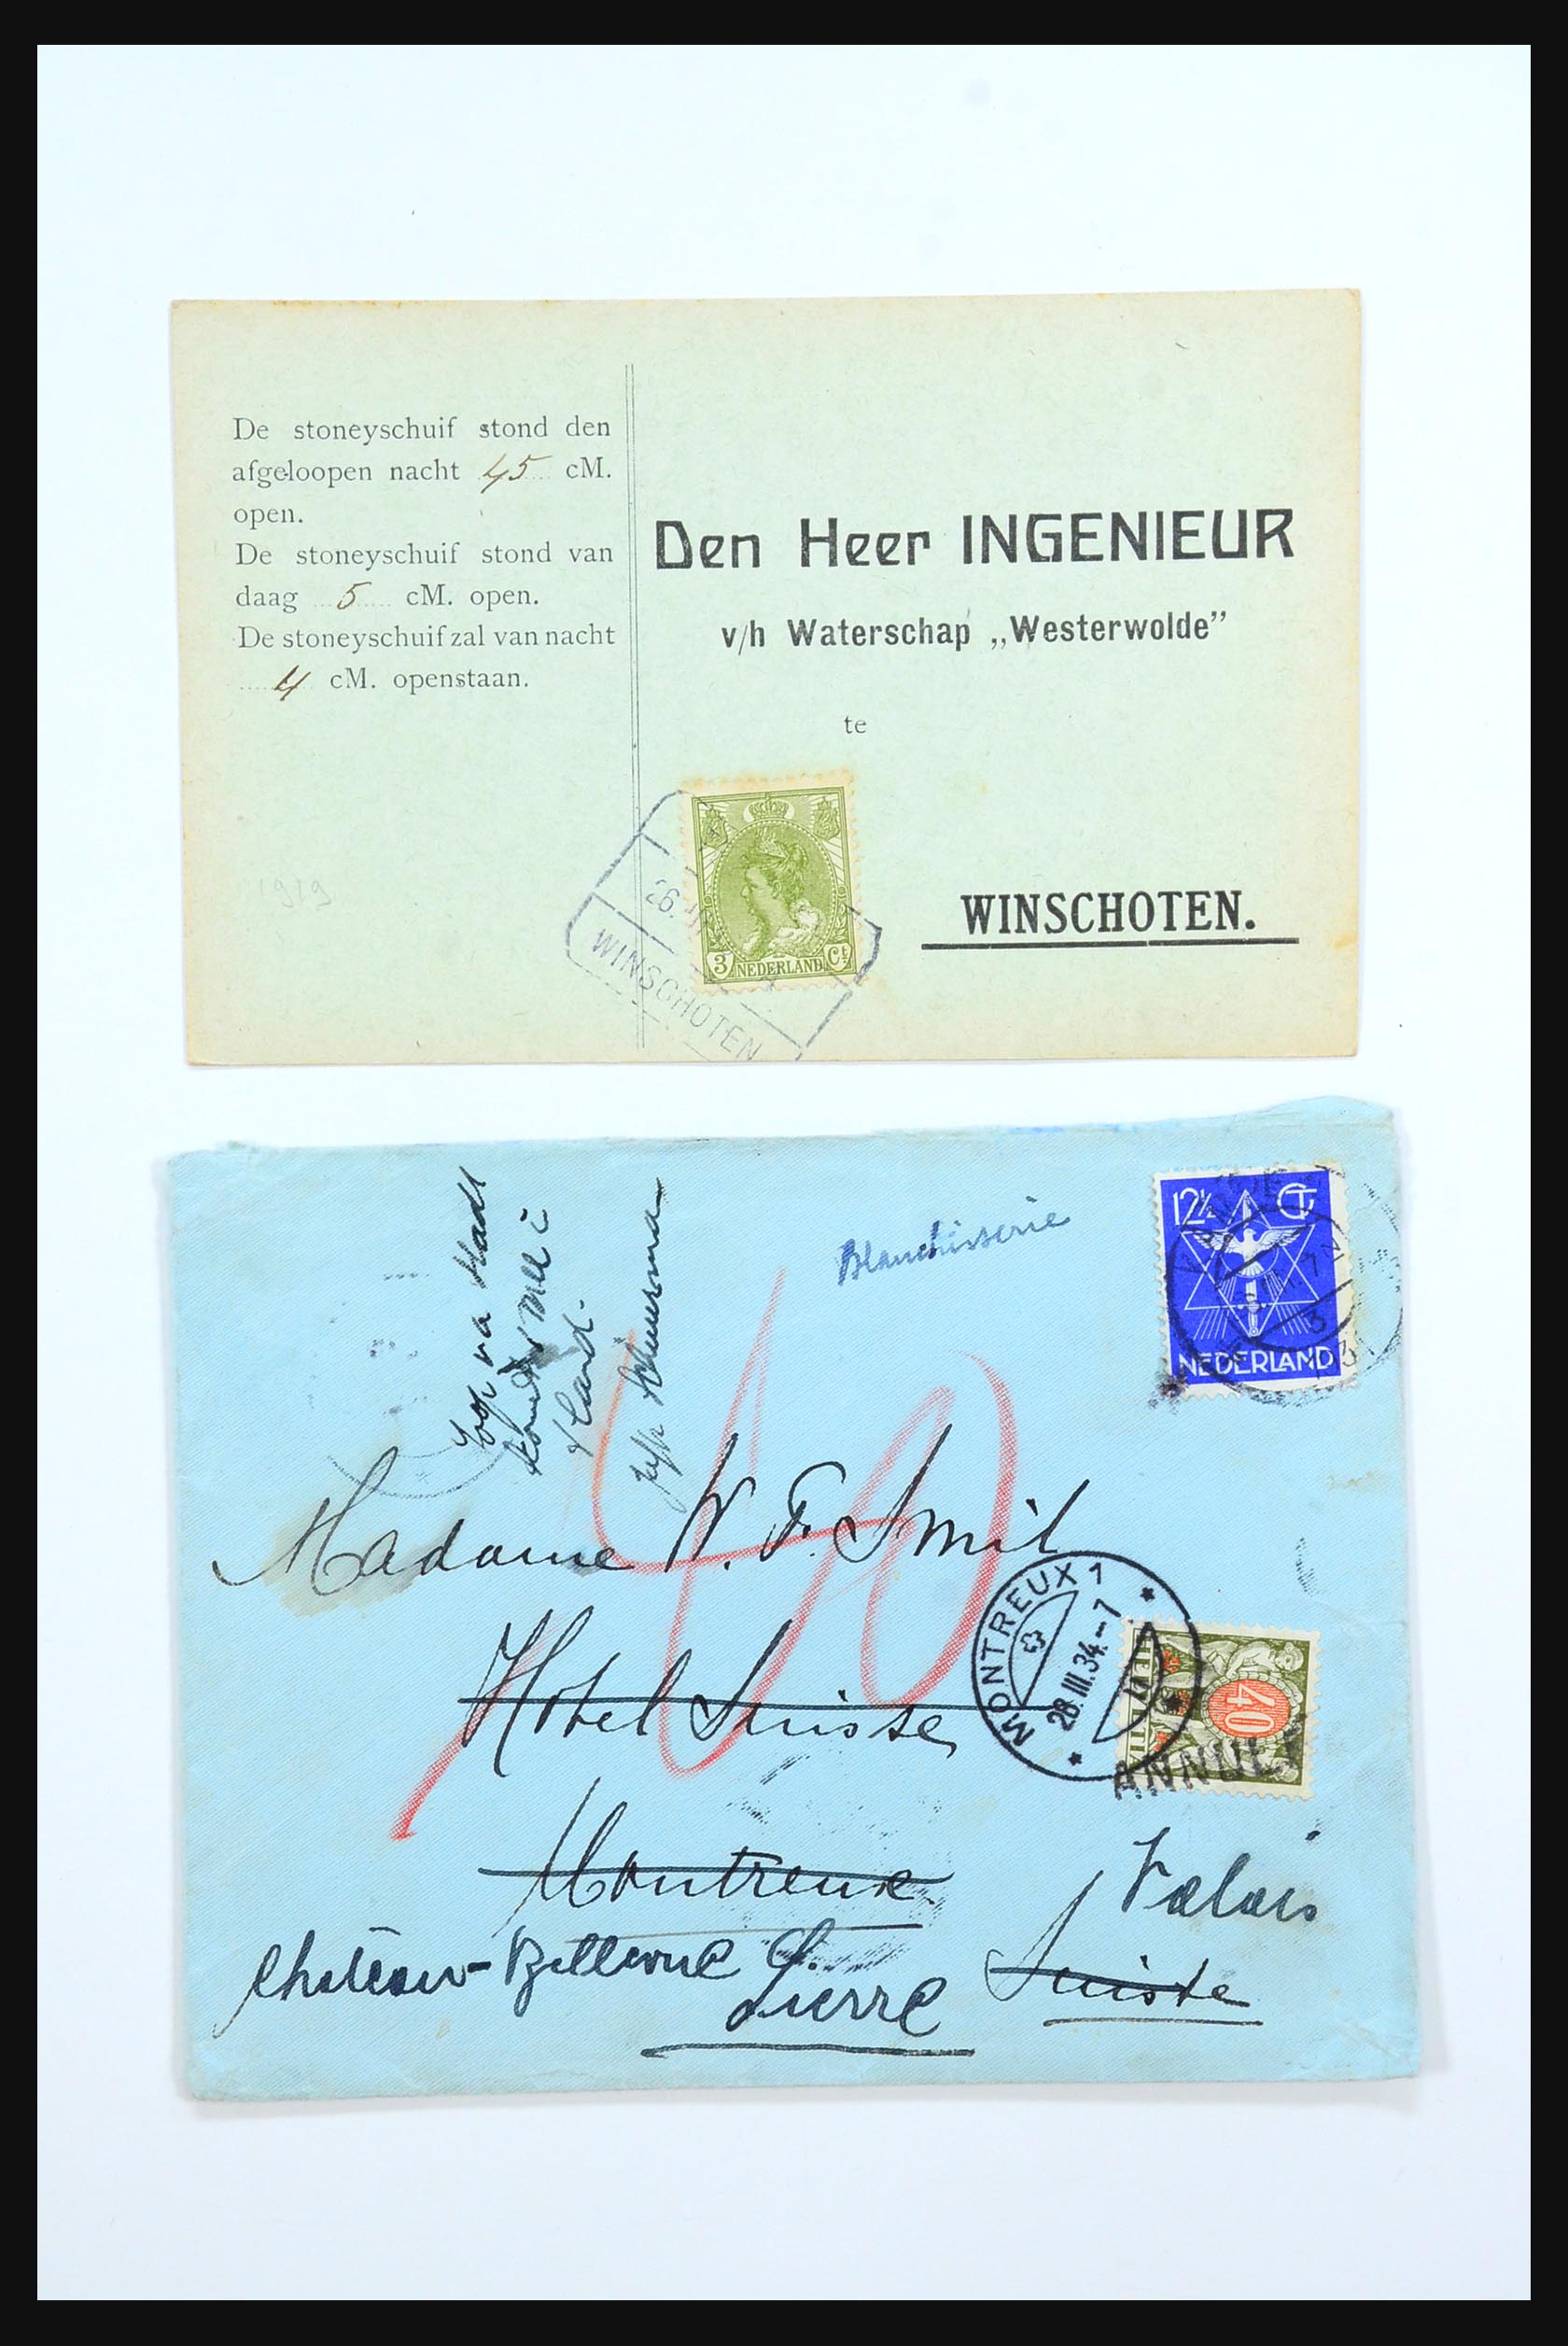 De stoneyschuif stond den
afgeloopen nacht 45 cM.
open.
De stoneyschuif stond van
daag 5 cM. open.
De stoneyschuif zal van nacht
4 cM. openstaan.
Den Heer INGENIEUR
v/h Waterschap „Westerwolde”
te
WINSCHOTEN.
1919
26.
WINSCHOTEN
3 NEDERLAND Ct
Blanchisserie
12½ CT
NEDERLAND
Madame W. F. Smit
Hotel Suisse
Montreux
Suisse
Château-Bellevue
Sierre
Valais
40
MONTREUX 1
28.III.34.–7
40
ANNULÉ